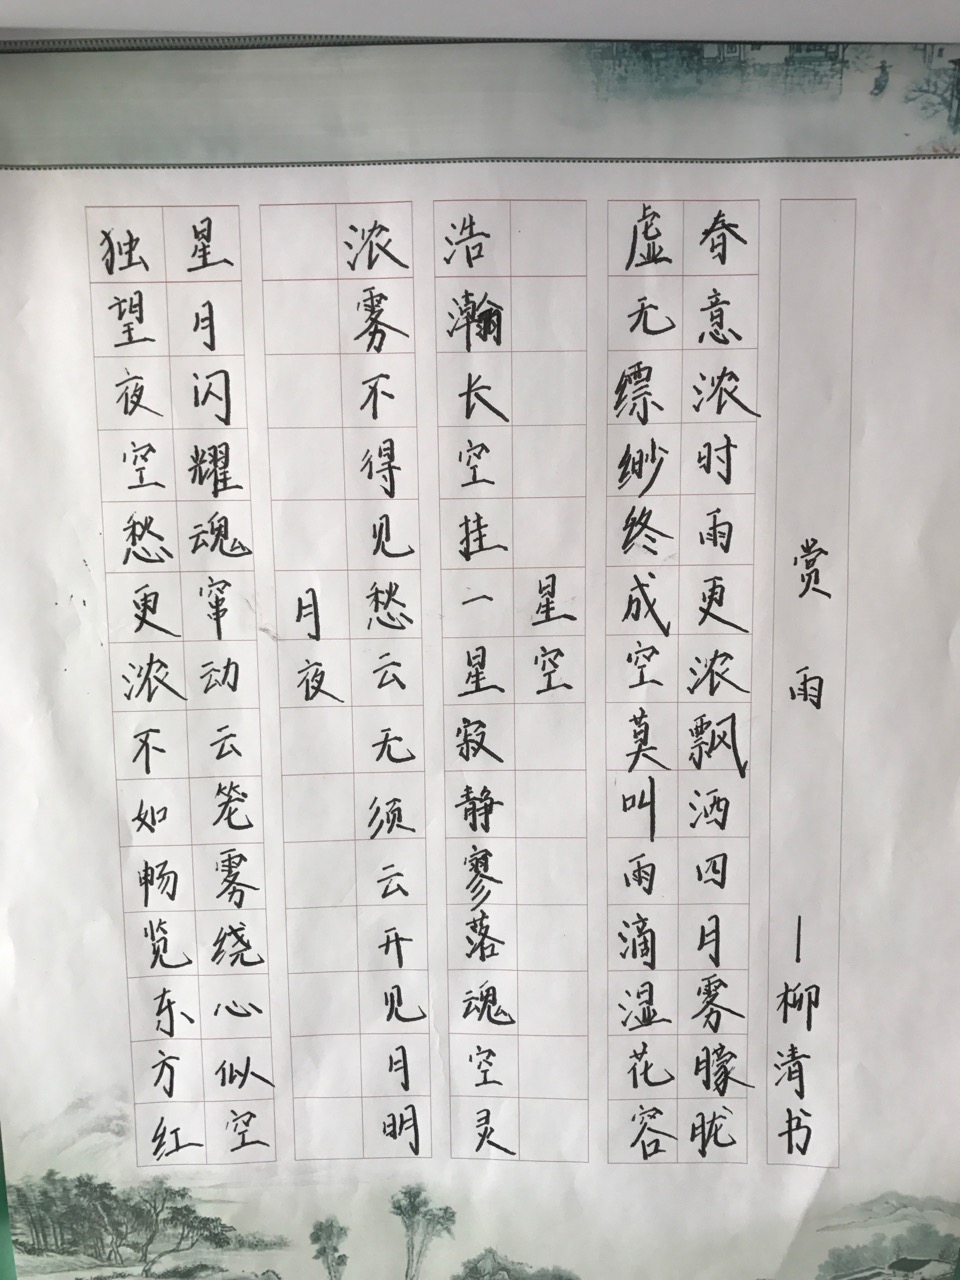 赏雨 —柳清书
春意浓时雨更浓飘洒四月雾朦胧
虚无缥缈终成空莫叫雨滴湿花容
星空
浩瀚长空挂一星寂静寥落魂空灵
浓雾不得见愁云无须云开见月明
月夜
星月闪耀魂窜动云笼雾绕心似空
独望夜空愁更浓不如畅览东方红